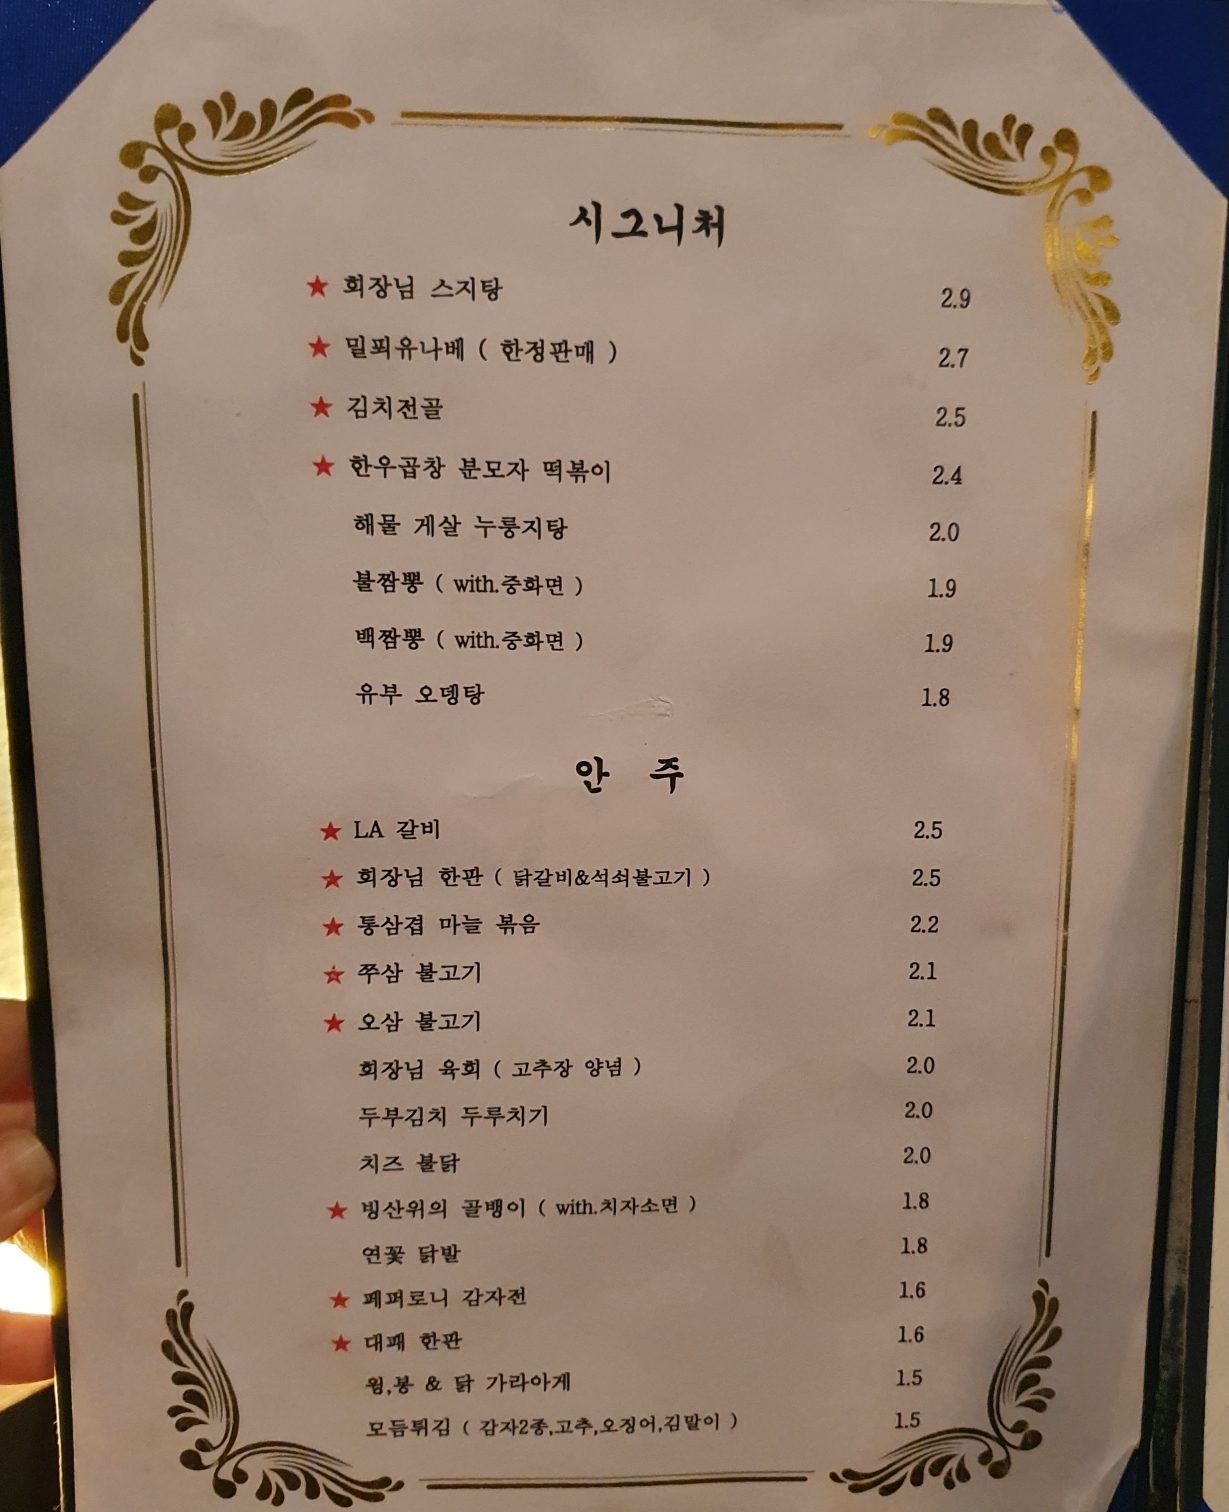 시그니처
★ 회장님 스지탕 2.9
★ 밀푀유나베 ( 한정판매 ) 2.7
★ 김치전골 2.5
★ 한우곱창 분모자 떡볶이 2.4
해물 게살 누룽지탕 2.0
불짬뽕 ( with.중화면 ) 1.9
백짬뽕 ( with.중화면 ) 1.9
유부 오뎅탕 1.8
안 주
★ LA 갈비 2.5
★ 회장님 한판 ( 닭갈비&석쇠불고기 ) 2.5
★ 통삼겹 마늘 볶음 2.2
★ 쭈삼 불고기 2.1
★ 오삼 불고기 2.1
회장님 육회 ( 고추장 양념 ) 2.0
두부김치 두루치기 2.0
치즈 불닭 2.0
★ 빙산위의 골뱅이 ( with.치자소면 ) 1.8
연꽃 닭발 1.8
★ 페퍼로니 감자전 1.6
★ 대패 한판 1.6
윙,봉 & 닭 가라아게 1.5
모듬튀김 ( 감자2종,고추,오징어,김말이 ) 1.5